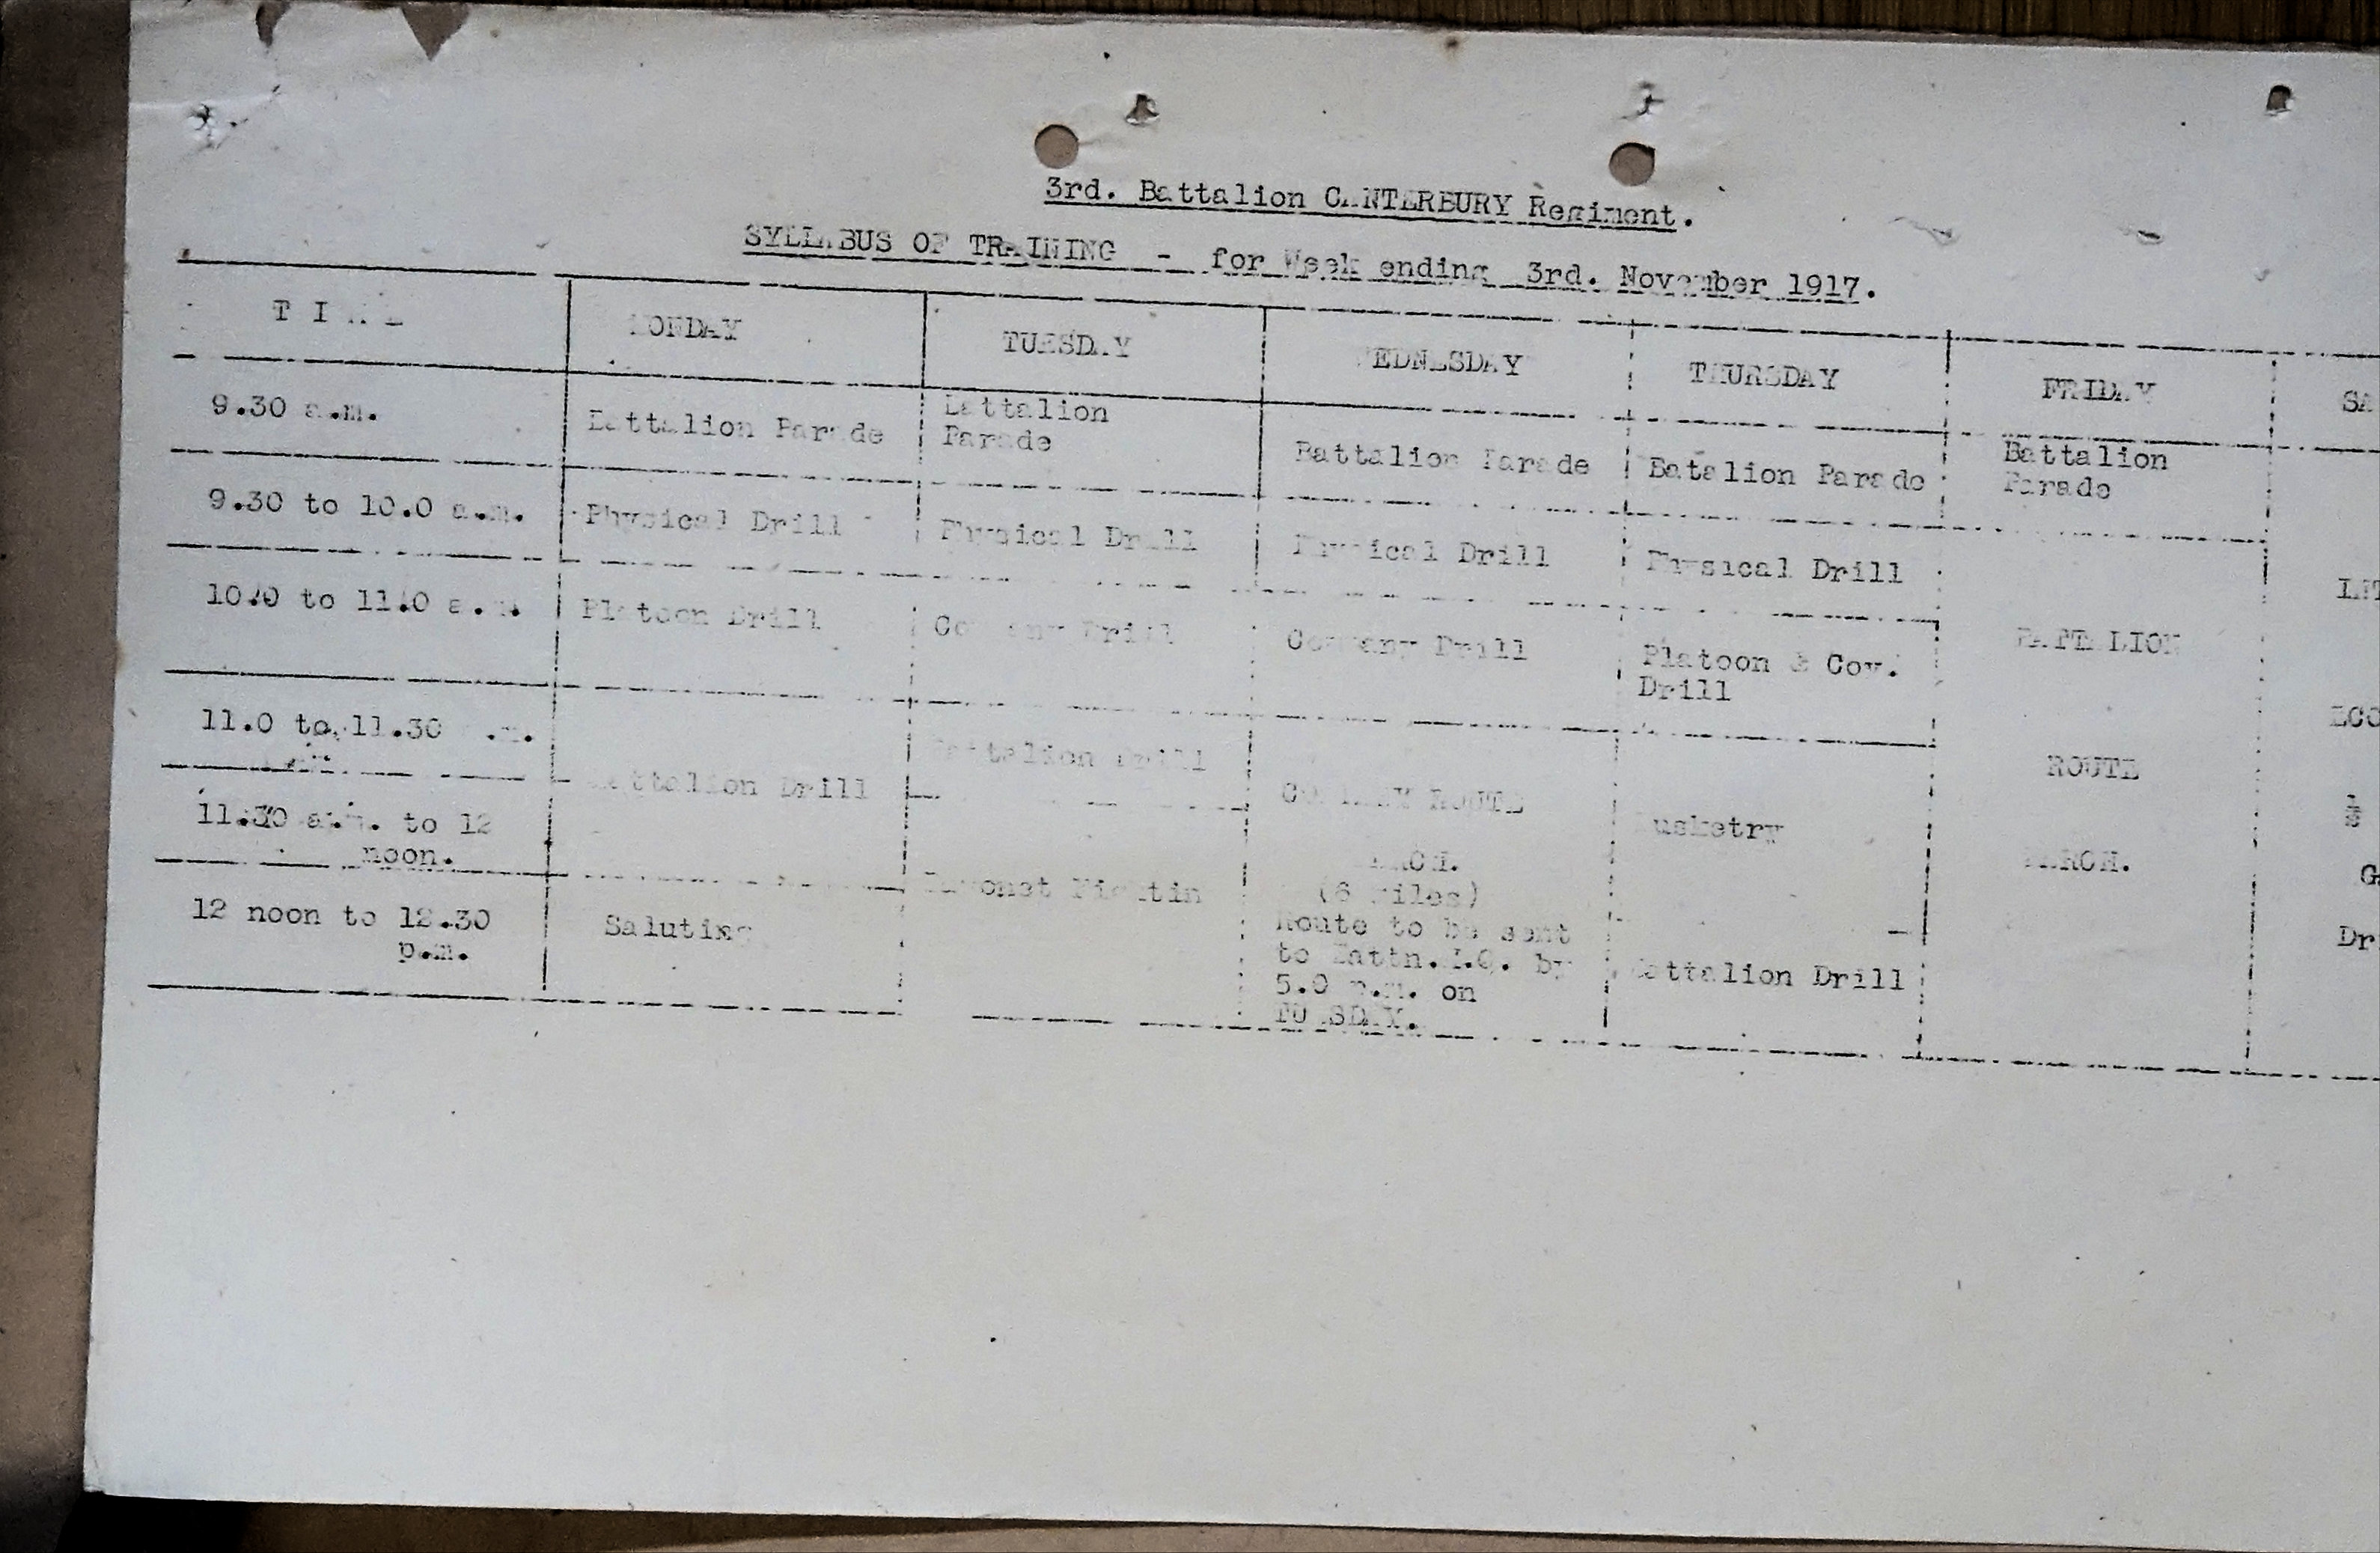 3rd. Battalion CANTERBURY Regiment.
SYLLABUS OF TRAINING - for Week ending 3rd. November 1917.
TIME MONDAY TUESDAY WEDNESDAY THURSDAY FRIDAY SA
9.30 a.m. Battalion Parade Battalion Parade Battalion Parade Batalion Parade Battalion Parade
9.30 to 10.0 a.m. Physical Drill Physical Drill Physical Drill Physical Drill
10.0 to 11.0 a.m. Platoon Drill Company Drill Company Drill Platoon & Coy. Drill
11.0 to 11.30 a.m. Battalion Drill Battalion Drill COMPANY ROUTE MARCH. (6 miles) Musketry BATTALION ROUTE MARCH.
11.30 a.m. to 12 noon. Bayonet Fightin
12 noon to 12.30 p.m. Saluting Battalion Drill
Route to be sent
to Battn.H.Q. by
5.0 p.m. on
TUESDAY.
G
Dr